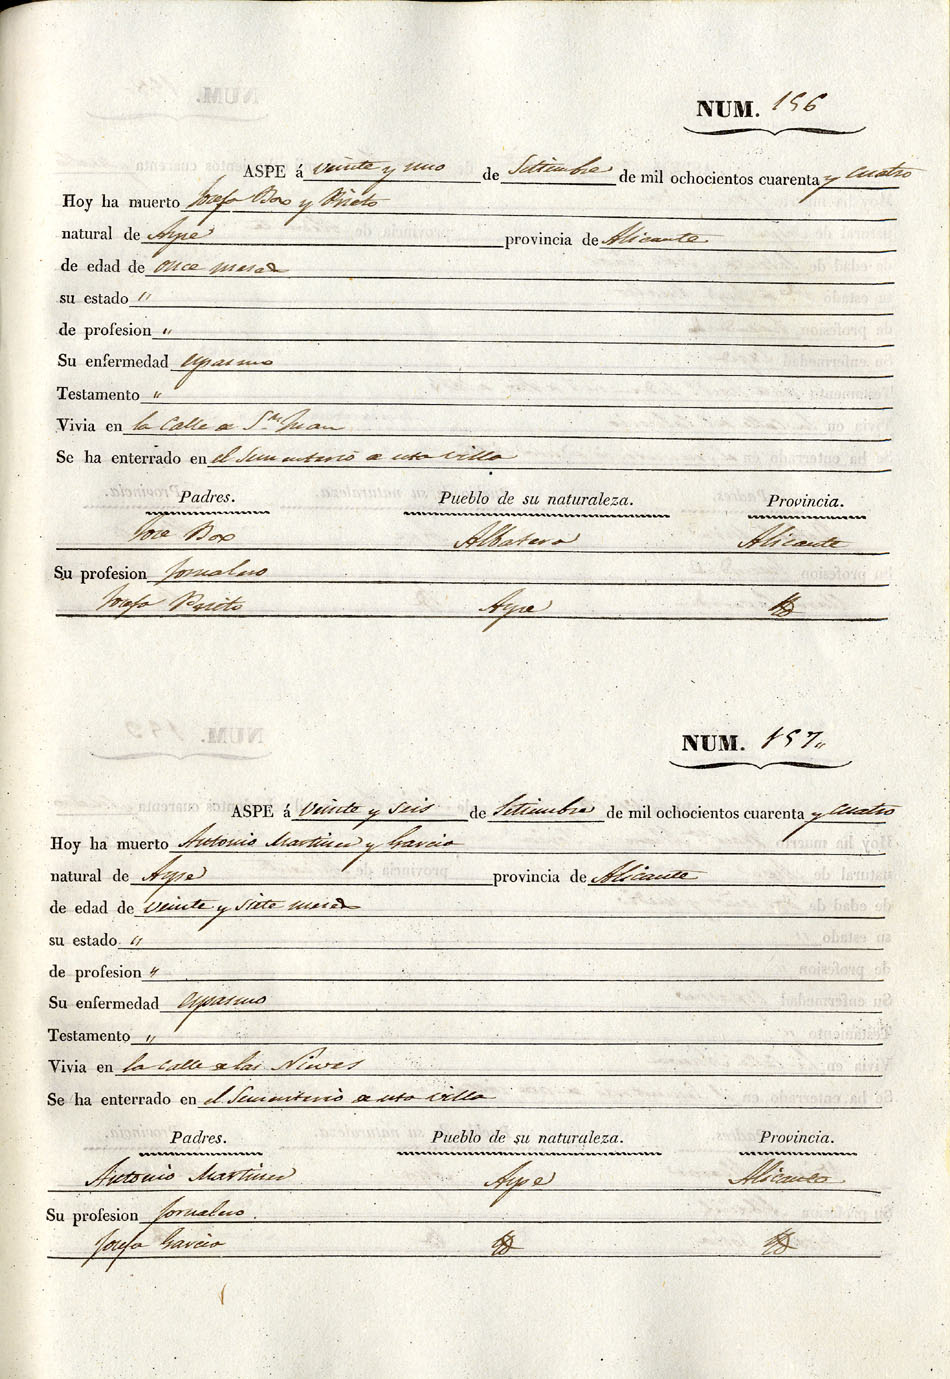 NUM. 156
ASPE á veinte y uno de Setiembre de mil ochocientos cuarenta y cuatro
Hoy ha muerto Josefa Box y Prieto
natural de Aspe provincia de Alicante
de edad de once meses
su estado "
de profesion "
Su enfermedad espasmo
Testamento "
Vivia en la Calle de Sn Juan
Se ha enterrado en el Sementerio de esta villa
Padres. Pueblo de su naturaleza. Provincia.
Jose Box Albatera Alicante
Su profesion Jornalero
Josefa Prieto Aspe
NUM. 157
ASPE á veinte y seis de Setiembre de mil ochocientos cuarenta y cuatro
Hoy ha muerto Antonio Martinez y Garcia
natural de Aspe provincia de Alicante
de edad de veinte y siete meses
su estado "
de profesion "
Su enfermedad espasmo
Testamento "
Vivia en la Calle de las Nieves
Se ha enterrado en el Sementerio de esta villa
Padres. Pueblo de su naturaleza. Provincia.
Antonio Martinez Aspe Alicante
Su profesion Jornalero
Josefa Garcia